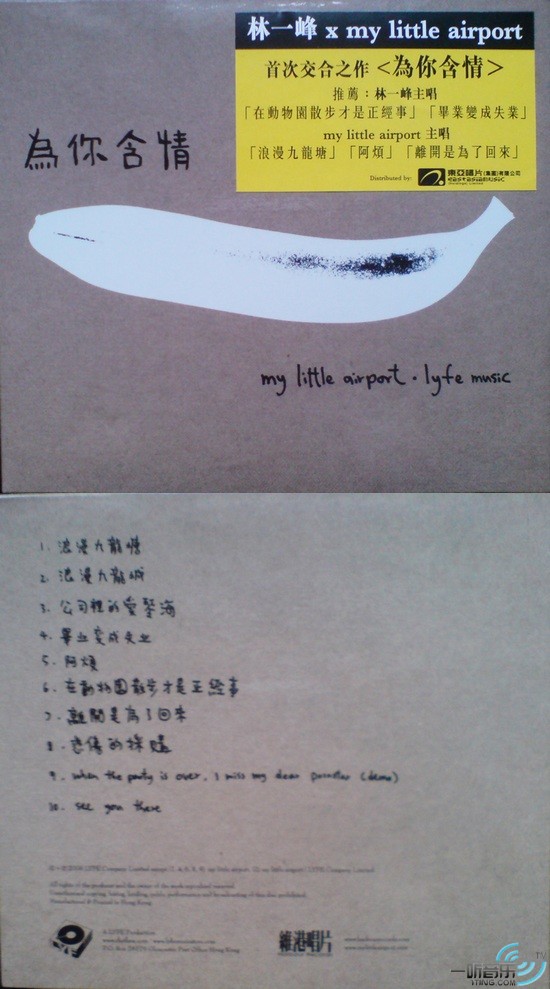 林一峰 x my little airport
首次交合之作 <為你含情>
推薦：林一峰主唱
「在動物園散步才是正經事」「畢業變成失業」
my little airport 主唱
「浪漫九龍塘」「阿煩」「離開是為了回來」
Distributed by: 東亞唱片(集團)有限公司
為你含情
my little airport · lyfe music
1. 浪漫九龍塘
2. 浪漫九龍城
3. 公司裡的愛琴海
4. 畢业变成失业
5. 阿煩
6. 在動物園散步才是正經事
7. 離開是為了回来
8. 悲傷的採購
9. when the party is over, I miss my dear (demo)
10. see you there
All rights of the producer and the owner of the work reproduced reserved.
Manufactured & Printed in Hong Kong
A LYFE Production
維港唱片
一听音乐
1TING.COM